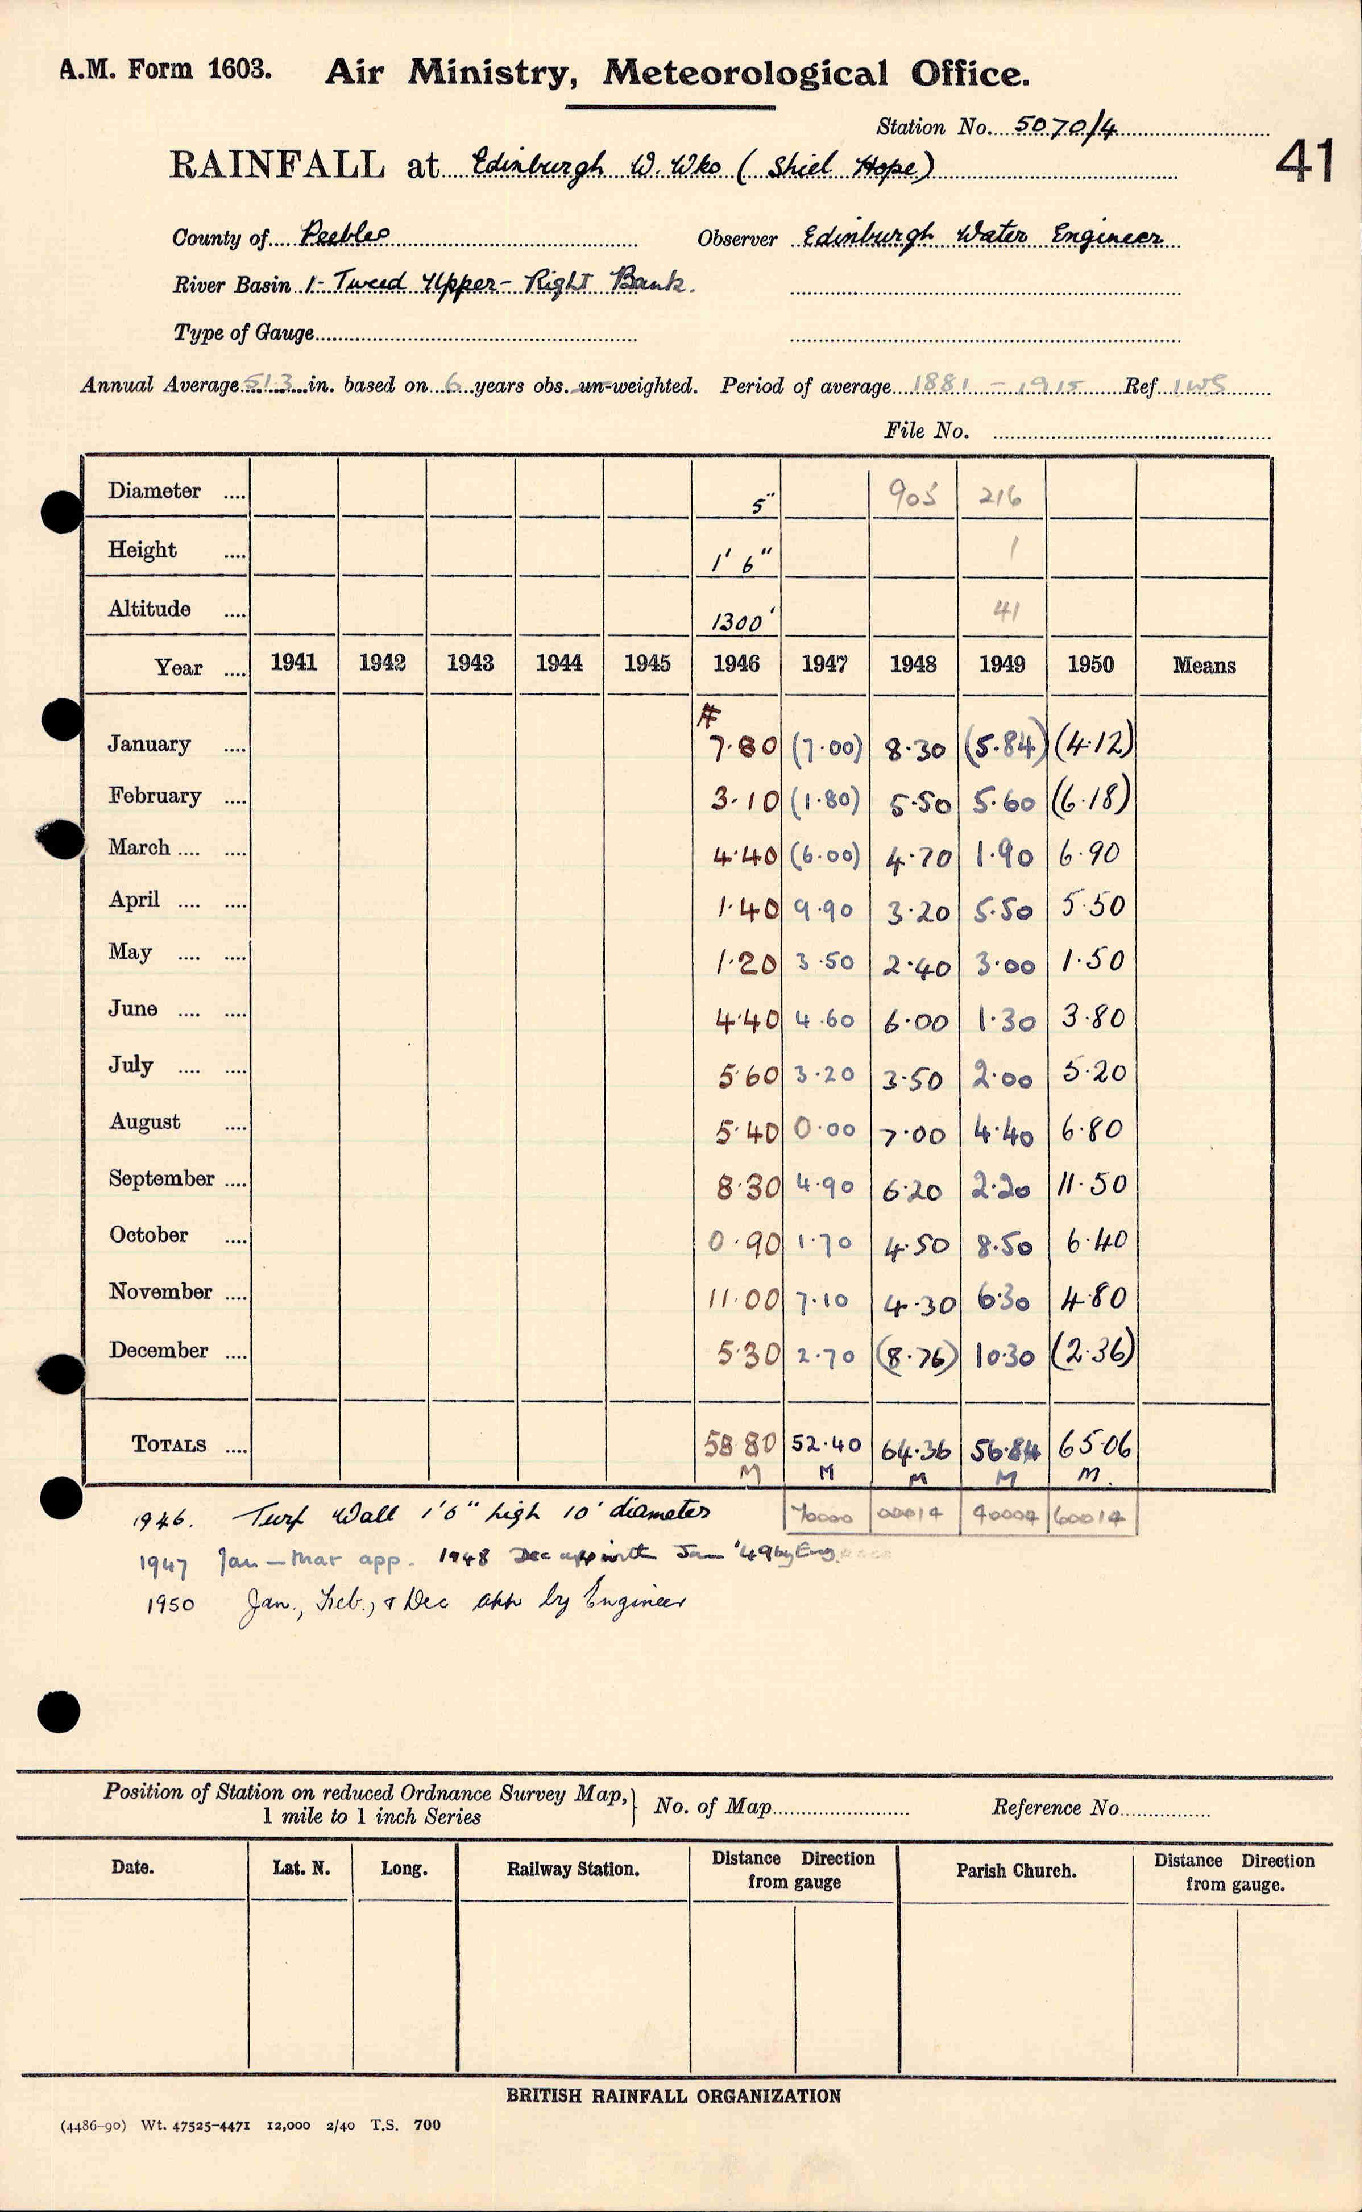 A.M. Form 1603. Air Ministry, Meteorological Office.
Station No. 5070/4
41
RAINFALL at Edinburgh W. Wks (Shiel Hope)
County of Peebles Observer Edinburgh Water Engineer
River Basin 1- Tweed Upper - Right Bank.
Type of Gauge
Annual Average 51.3 in. based on 6 years obs. un-weighted. Period of average 1881 - 1915 Ref
File No.
Diameter .... 5" 905 216
Height .... 1' 6" 1
Altitude .... 1300' 41
Year .... 1941 1942 1943 1944 1945 1946 1947 1948 1949 1950 Means
January .... 7.80 (7.00) 8.30 (5.84) (4.12)
February .... 3.10 (1.80) 5.50 5.60 (6.18)
March .... .... 4.40 (6.00) 4.70 1.90 6.90
April .... .... 1.40 9.90 3.20 5.50 5.50
May .... .... 1.20 3.50 2.40 3.00 1.50
June .... .... 4.40 4.60 6.00 1.30 3.80
July .... .... 5.60 3.20 3.50 2.00 5.20
August .... 5.40 0.00 7.00 4.40 6.80
September .... 8.30 4.90 6.20 2.20 11.50
October .... 0.90 1.70 4.50 8.50 6.40
November .... 11.00 7.10 4.30 6.30 4.80
December .... 5.30 2.70 (8.76) 10.30 (2.36)
TOTALS .... 58.80 52.40 64.36 56.84 65.06
M M M M M.
70000 00014 90004 60014
1946. Turf Wall 1'6" high 10' diameter
1947 Jan - Mar app. 1948 Dec app with Jan '49 by Eng.
1950 Jan., Feb., & Dec app by Engineer
Position of Station on reduced Ordnance Survey Map,} No. of Map Reference No.
1 mile to 1 inch Series
Date. Lat. N. Long. Railway Station. Distance from gauge Direction Parish Church. Distance Direction from gauge.
BRITISH RAINFALL ORGANIZATION
(4486-90) Wt. 47525-4471 12,000 2/40 T.S. 700